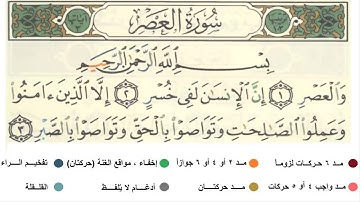 سُورَةُ العَصْرِ
بِسْمِ ٱللَّهِ ٱلرَّحْمَٰنِ ٱلرَّحِيمِ
وَٱلْعَصْرِ ١ إِنَّ ٱلْإِنسَٰنَ لَفِى خُسْرٍ ٢ إِلَّا ٱلَّذِينَ ءَامَنُوا۟
وَعَمِلُوا۟ ٱلصَّٰلِحَٰتِ وَتَوَاصَوْا۟ بِٱلْحَقِّ وَتَوَاصَوْا۟ بِٱلصَّبْرِ ٣
مد ٦ حركات لزوماً مد ٢ أو ٤ أو ٦ جوازاً إخفاء ، مواقع الغنة (حركتان) تفخيم الراء
مد واجب ٤ أو ٥ حركات مد حركتان أدغام ، لا يلفظ القلقلة